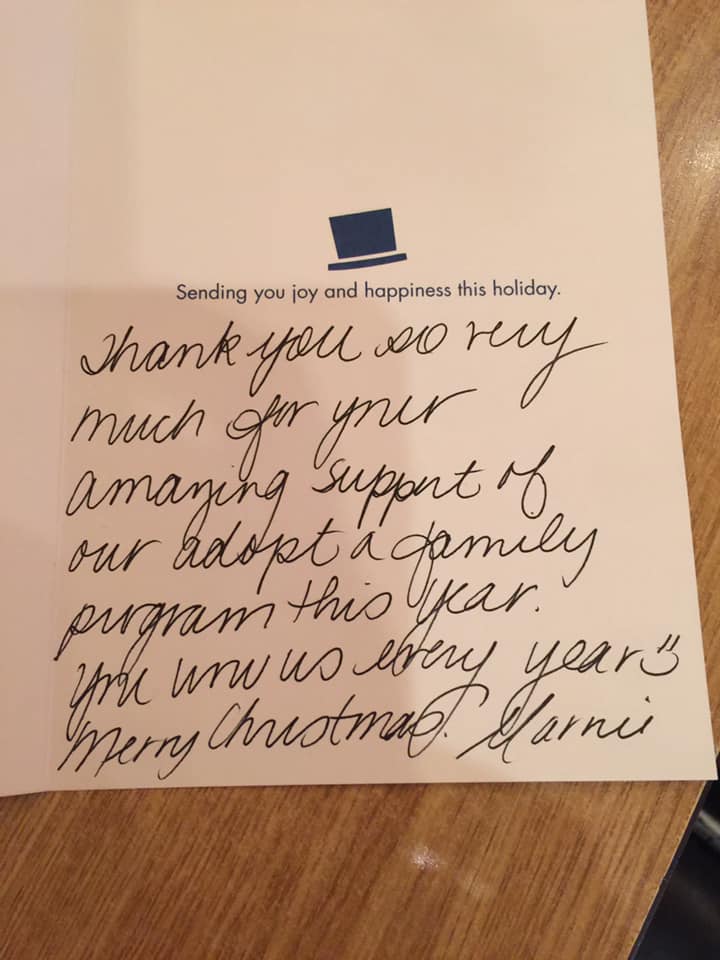 Sending you joy and happiness this holiday.
Thank you so very
much for your
amazing support of
our adopt a family
program this year.
You wow us every year
Merry Christmas! Marnie